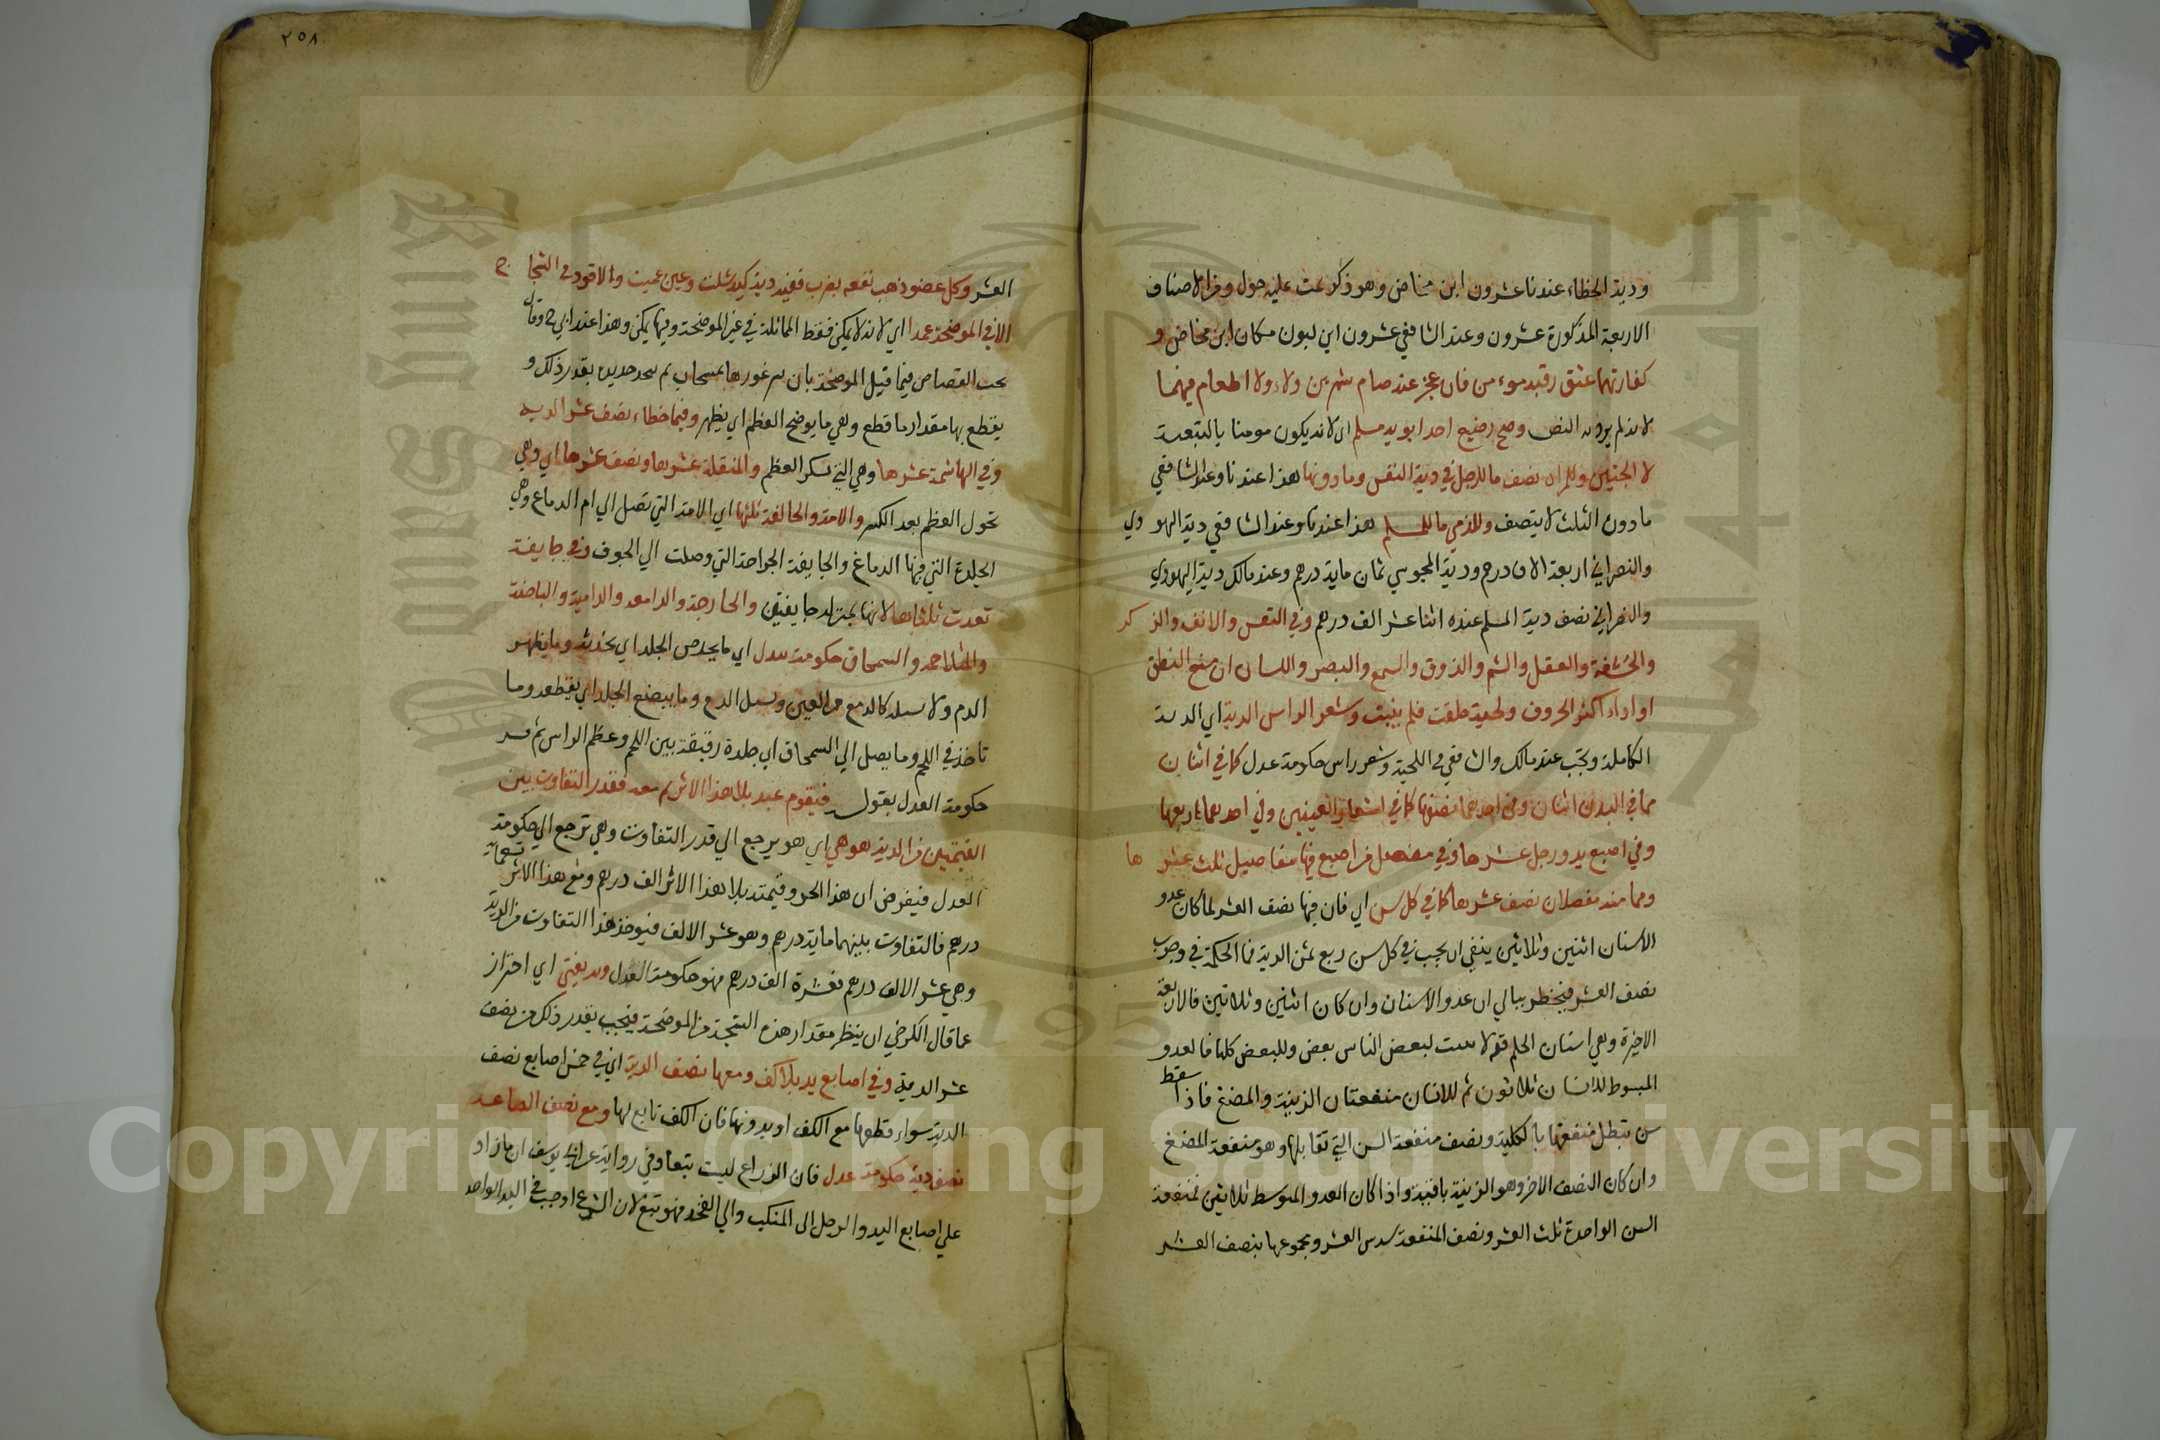 ٢٥٨
ودية الخطاء عندنا عشرون ابن مخاض وهو ذكر تمت عليه حول ومن الاصناف
الاربعة المذكورة عشرون وعند الشافعي عشرون ابن لبون مكان ابن مخاض و
كفارتهما عتق رقبة مومن فان عجز عنه صام شهرين ولاء ولا اطعام فيهما
لانه لم يرد به النص وصح رضيع احد ابويه مسلم اي لانه يكون مومنا بالتبعية
لا الجنين وللمراة نصف ما للرجل في دية النفس وما دونها هذا عندنا وعند الشافعي
ما دون الثلث لا يتصف وللذمي ما للمسلم هذا عندنا وعند الشافعي دية اليهودي
والنصراني اربعة الاف درهم ودية المجوسي ثمان ماية درهم وعند مالك دية اليهودي
والنصراني نصف دية المسلم عنده اثنا عشر الف درهم وفي النفس والانف والذكر
والحشفة والعقل والشم والذوق والسمع والبصر واللسان ان منع النطق
او اداء اكثر الحروف ولحية حلقت فلم ينبت وشعر الراس الدية اي الدية
الكاملة وتجب عند مالك والشافعي في اللحية وشعر راس حكومة عدل كما في اثنان
مما في البدن اثنان وفي احدهما نصفها كما في اشفار العينين وفي احدهما ربعها
وفي اصبع يد ورجل عشرها وفي مفصل من اصبع فيها مفاصيل ثلث عشرها
ومما منه مفصلان نصف عشرها كما في كل سن اي فان فيها نصف العشر لما كان عدد
الاسنان اثنين وثلاثين ينبغي ان يجب في كل سن ربع ثمن الدية فما الحكمة في وجوب
نصف العشر فيخطر ببالي ان عدد الاسنان وان كان اثنين وثلاثين فالاربعة
الاخيرة وهي اسنان الحلم قد لا ينبت لبعض الناس بعض وللبعض كلها فالعدد
المبسوط للانسان ثلاثون ثم للانسان منفعتان الزينة والمضغ فاذا سقط
سن تبطل منفعتها بالكلية ونصف منفعة السن التي تقابلها وهو منفعة المضغ
وان كان النصف الاخر وهو الزينة باقية واذا كان العدد المتوسط ثلاثين فمنفعة
السن الواحدة ثلث العشر ونصف المنفعة سدس العشر ومجموعها نصف العشر
العشر وكل عضو ذهب نفعه بضرب ففيه دية كيد شلت وعين عميت ولا قود في الشجاج
الا في الموضحة عمدا اي لانه لا يمكن فقط المماثلة في غير الموضحة وفيها يمكن وهذا عند ابي ح وقال
يجب القصاص فيما قبل الموضحة بان يسبر غورها بمسحاب ثم يتخذ حديد بقدر ذلك و
يقطع بها مقدار ما قطع وهي ما يوضح العظم اي يظهر وفيما خطاء نصف عشر الدية
وفي الهاشمة عشرها وهي التي تكسر العظم والمنقلة عشرها ونصف عشرها اي وهي
تحول العظم بعد الكسر والامة والجايفة ثلثها اي الامة التي تصل الي ام الدماغ وهي
الجلدة التي فيها الدماغ والجايفة الجراحة التي وصلت الي الجوف وفي جايفة
نفذت ثلثاها لانها بمنزلة جايفتين والحارصة والدامعة والدامية والباضعة
والمتلاحمة والسمحاق حكومة عدل اي ما يحرص الجلد اي يخدشه وما يظهر
الدم ولا يسيله كالدمع من العين ويسيل الدم وما يبضع الجلد اي يقطعه وما
تاخذ في اللحم وما يصل الي السمحاق اي جلدة رقيقة بين اللحم وعظم الراس ثم فسر
حكومة العدل بقوله فيقوم عبد بلا هذا الاثر ثم معه فقدر التفاوت بين
القيمتين من الدية هو هي اي هو يرجع الي قدر التفاوت وهي ترجع الي حكومة
العدل فيفرض ان هذا الحر وقيمته بلا هذا الاثر الف درهم ومع هذا الاثر تسعماية
درهم فالتفاوت بينهما ماية درهم وهو عشر الالف فيوخذ هذا التفاوت من الدية
وهي عشر الالف درهم فعشرة الف درهم فهو حكومة العدل وبه يفتي اي احتراز
عما قال الكرخي ان ينظر مقدار هذه الشجة من الموضحة فيجب بقدر ذلك من نصف
عشر الدية وفي اصابع يد بلا كف ومعها نصف الدية اي في خمس اصابع نصف
الدية سواء قطعها مع الكف او بدونها فان الكف تابع لها ومع نصف الساعد
نصف دية حكومة عدل فان الذراع ليست بتبعا وفي رواية عن ابي يوسف ان ما زاد
علي اصابع اليد والرجل الى المنكب والي الفخذ فهو تبع لان الشرع اوجب في اليد الواحد
Copyright © King Saud University
King Saud
1957